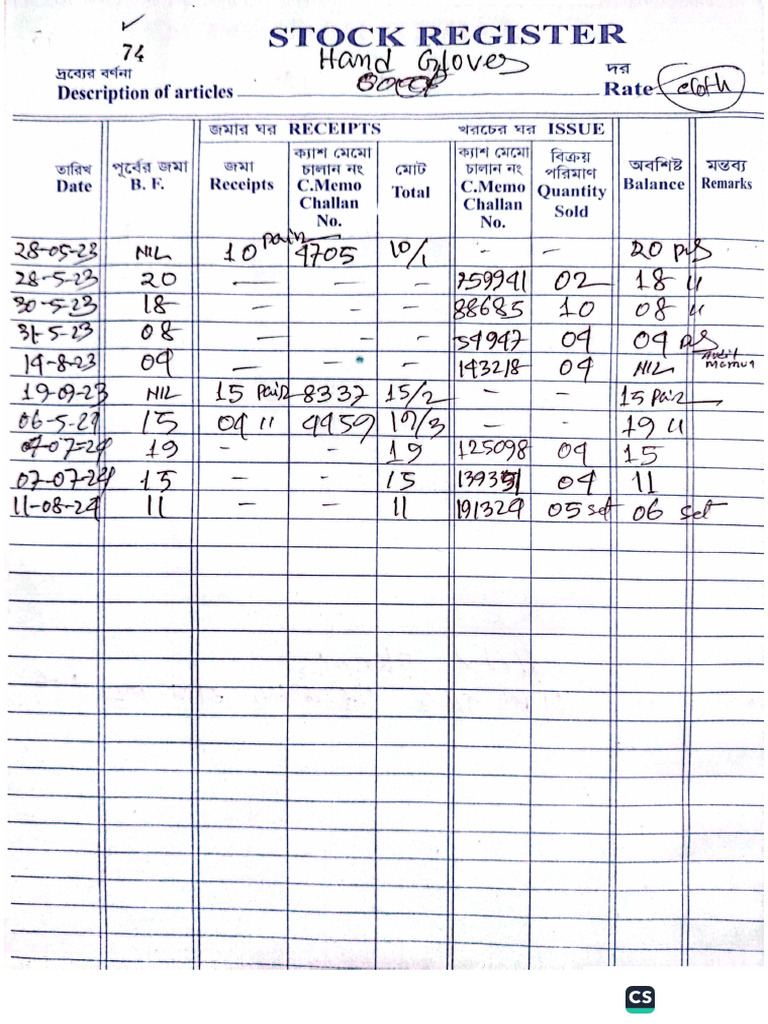 74
STOCK REGISTER
Hand Gloves
দ্রব্যের বর্ণনা দর
Description of articles Rate cloth
জমার ঘর RECEIPTS খরচের ঘর ISSUE
তারিখ Date পূর্বের জমা B. F. জমা Receipts ক্যাশ মেমো চালান নং C.Memo Challan No. মোট Total ক্যাশ মেমো চালান নং C.Memo Challan No. বিক্রয় পরিমাণ Quantity Sold অবশিষ্ট Balance মন্তব্য Remarks
28-05-23 NIL 10 pair 4705 10/1 - - 20 pcs
28-5-23 20 — — - 259941 02 18 "
30-5-23 18 — — - 88685 10 08 "
31-5-23 08 — — - 54947 04 04 pcs
14-8-23 04 — - - 143218 04 NIL
19-09-23 NIL 15 pair 8337 15/2 - - 15 pair
06-5-24 15 04 " 4459 19/3 - - 19 "
07-07-24 19 - - 19 125098 04 15
07-07-24 15 - - 15 139351 04 11
11-08-24 11 - - 11 191329 05 set 06 set
CS